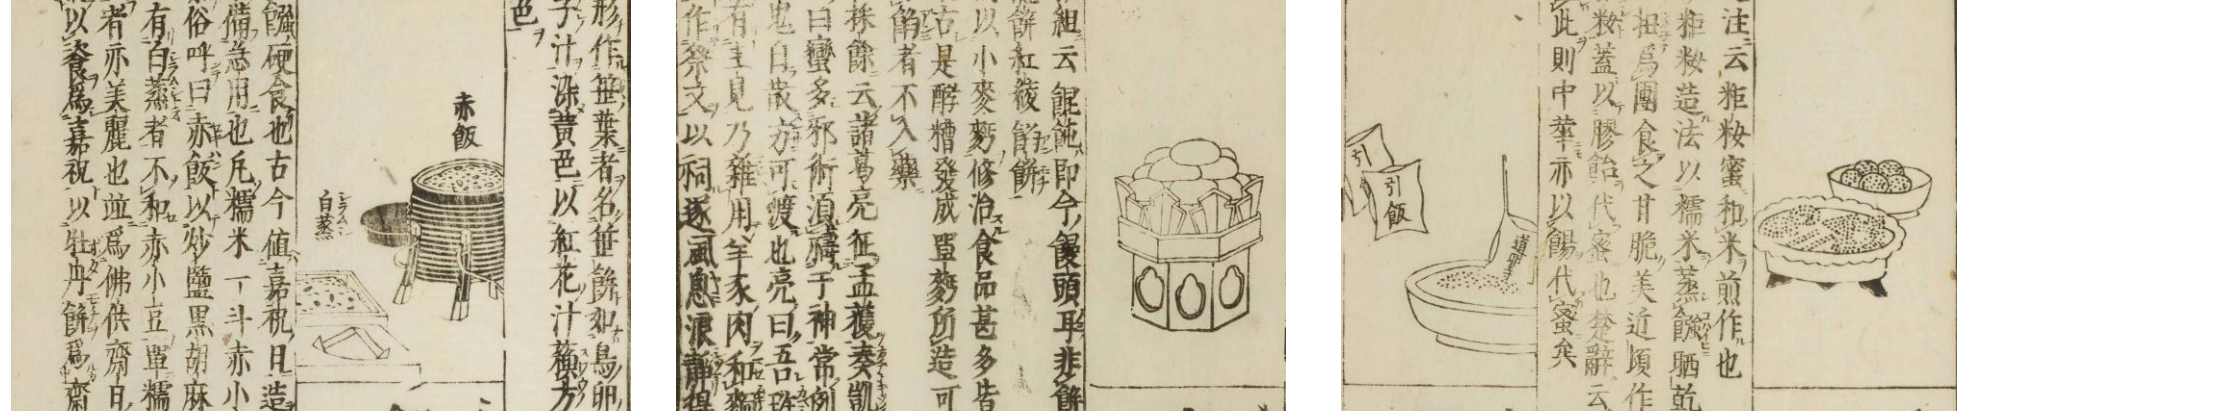 形作笹葉者名笹餅如鳥卵
子汁染黄色以紅花汁
色
赤飯
白蒸
硬食也古今値嘉祝日造
備急用也凡糯米一斗赤小
俗呼曰赤飯以炒鹽黒胡麻
有白蒸者不和赤小豆單糯
者亦美麗也並爲佛供齋日
以養爲嘉祝以牡丹餅爲齋
云餛飩即今饅頭耳非餅
餅紅綾餡餅
以小麥麪修治食品甚多皆
古是酵糟發成單麪所造可
餡者不入藥
餘云諸葛亮征孟獲奏凱
曰蠻多邪術須禱于神常例
鬼自散方可渡也亮曰吾
有主見乃雜用羊豕肉和麪
作祭文以祠逐風息浪靜得
注云粔籹蜜和米煎作也
粔籹造法以糯米蒸晒乾
扭爲團食之甘脆美近頃作
籹蓋以膠飴代蜜也楚辭云
此則中華亦以餳代蜜矣
引
引飯
道明寺